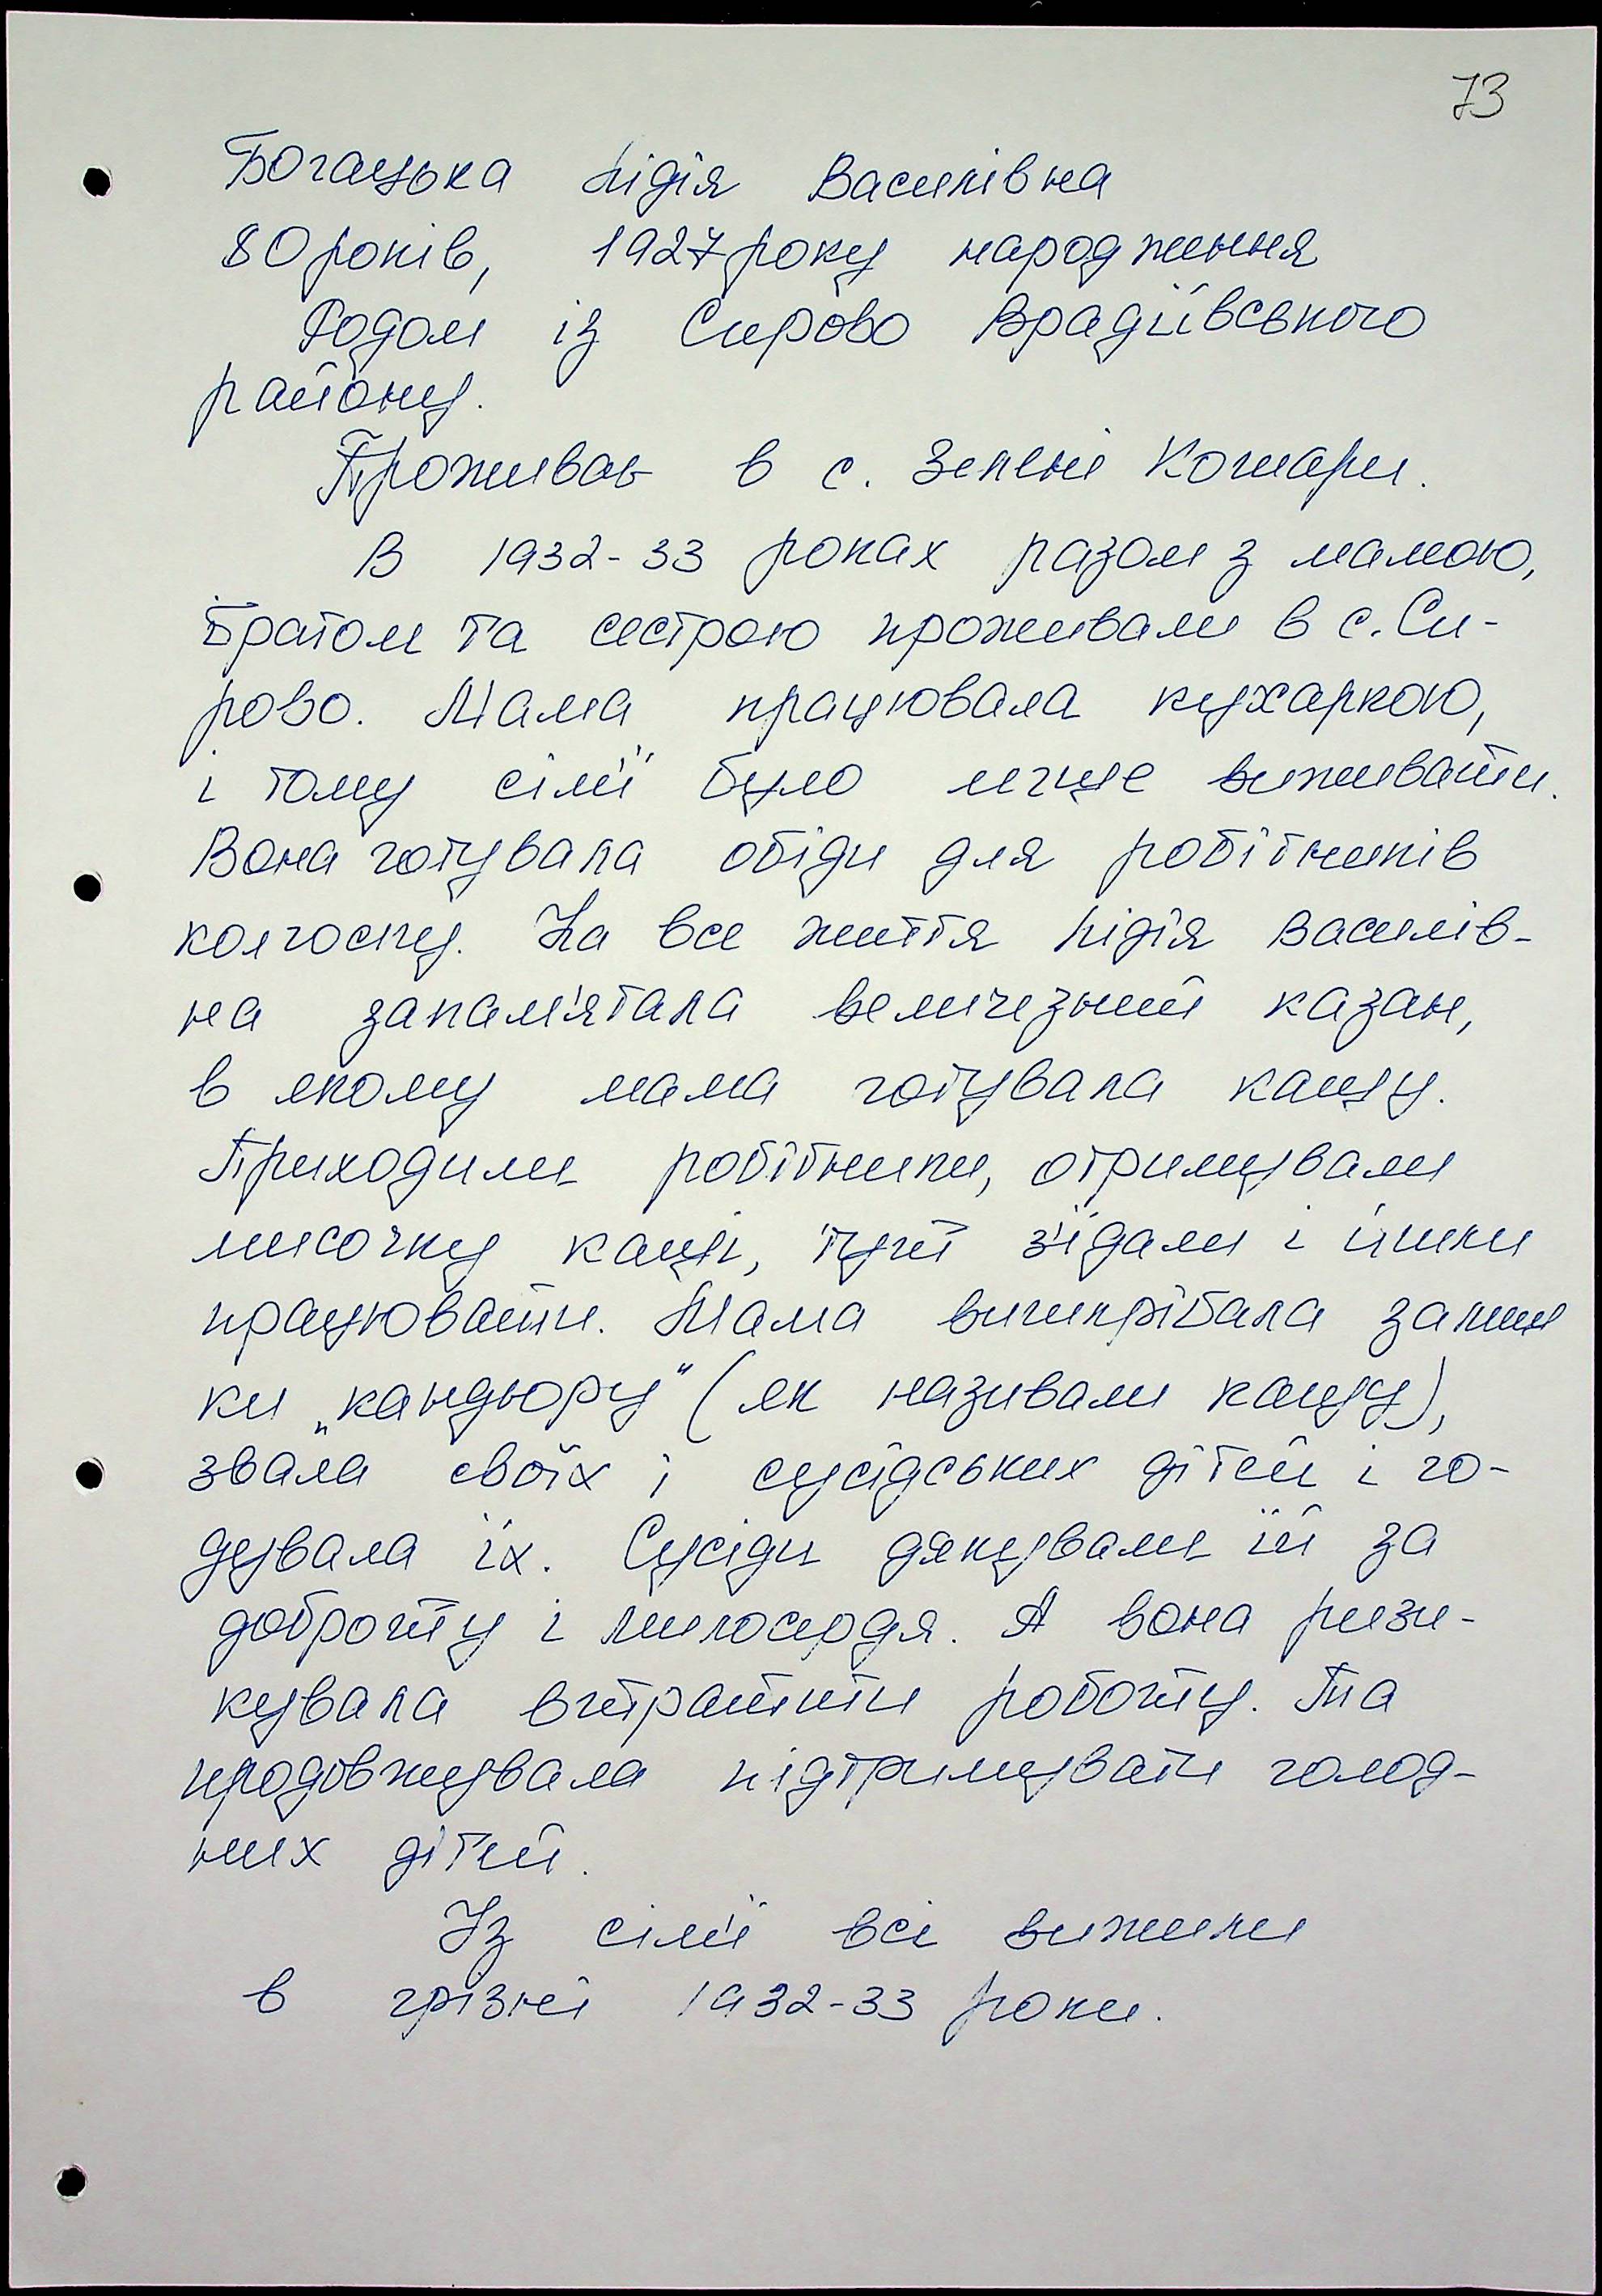 73
Богацька Лідія Василівна
80 років, 1927 року народження
Родом із Сирово Врадіївського
району.
Проживає в с. Зелені Кошари.
В 1932-33 роках разом з мамою,
братом та сестрою проживали в с. Си-
рово. Мама працювала кухаркою,
і тому сім'ї було легше виживати.
Вона готувала обіди для робітників
колгоспу. На все життя Лідія Василів-
на запам'ятала величезний казан,
в якому мама готувала кашу.
Приходили робітники, отримували
мисочку каші, тут з'їдали і йшли
працювати. Мама вишкрібала залиш
ки „кандьору" (як називали кашу),
звала своїх і сусідських дітей і го-
дувала їх. Сусіди дякували їй за
доброту і милосердя. А вона ризи-
кувала втратити роботу. Та
продовжувала підтримувати голод-
них дітей.
Із сім'ї всі вижили
в грізні 1932-33 роки.